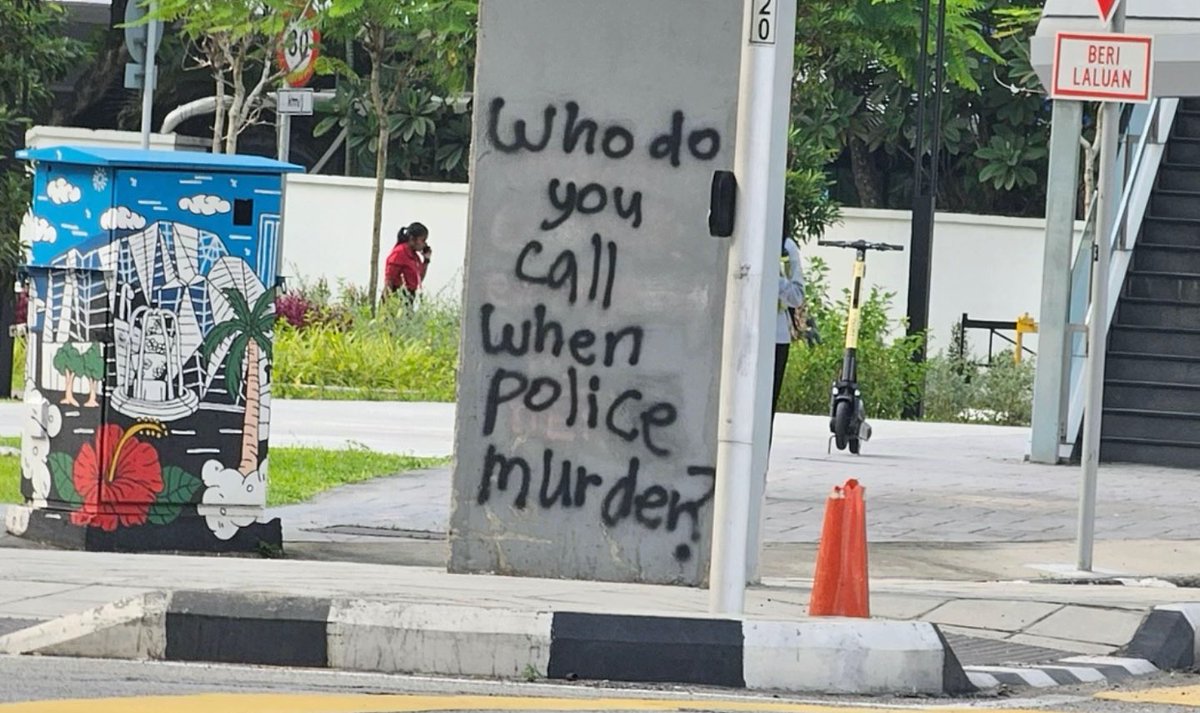 80
km/j
20
BERI
LALUAN
Who do
you
call
when
police
murder?